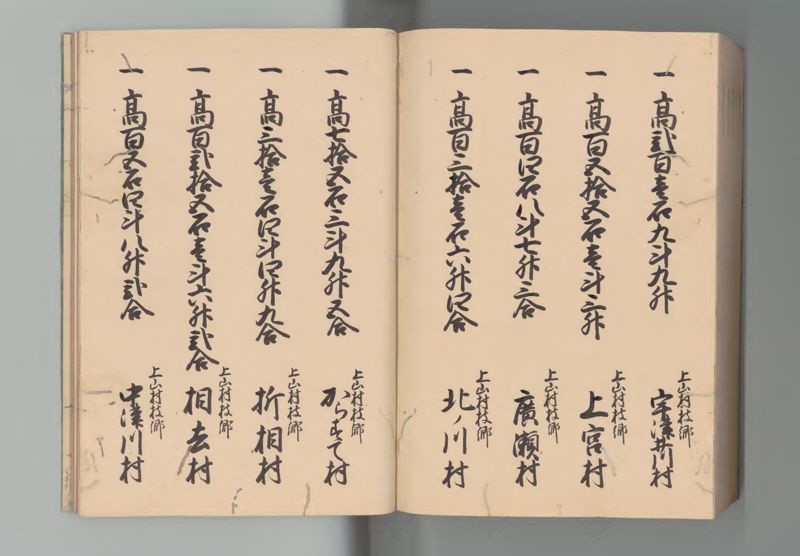 一 高弐百壱石九斗九升
上山村枝郷
宇津井川村
一 高百五拾五石壱斗三升
上山村枝郷
上宮村
一 高百四石八斗七升三合
上山村枝郷
廣瀬村
一 高百三拾壱石六升四合
上山村枝郷
北ノ川村
一 高七拾五石三斗九升五合
上山村枝郷
村
一 高三拾壱石四斗四升九合
上山村枝郷
折相村
一 高百弐拾五石壱斗六升弐合
上山村枝郷
相去村
一 高百五石四斗八升弐合
上山村枝郷
中津川村